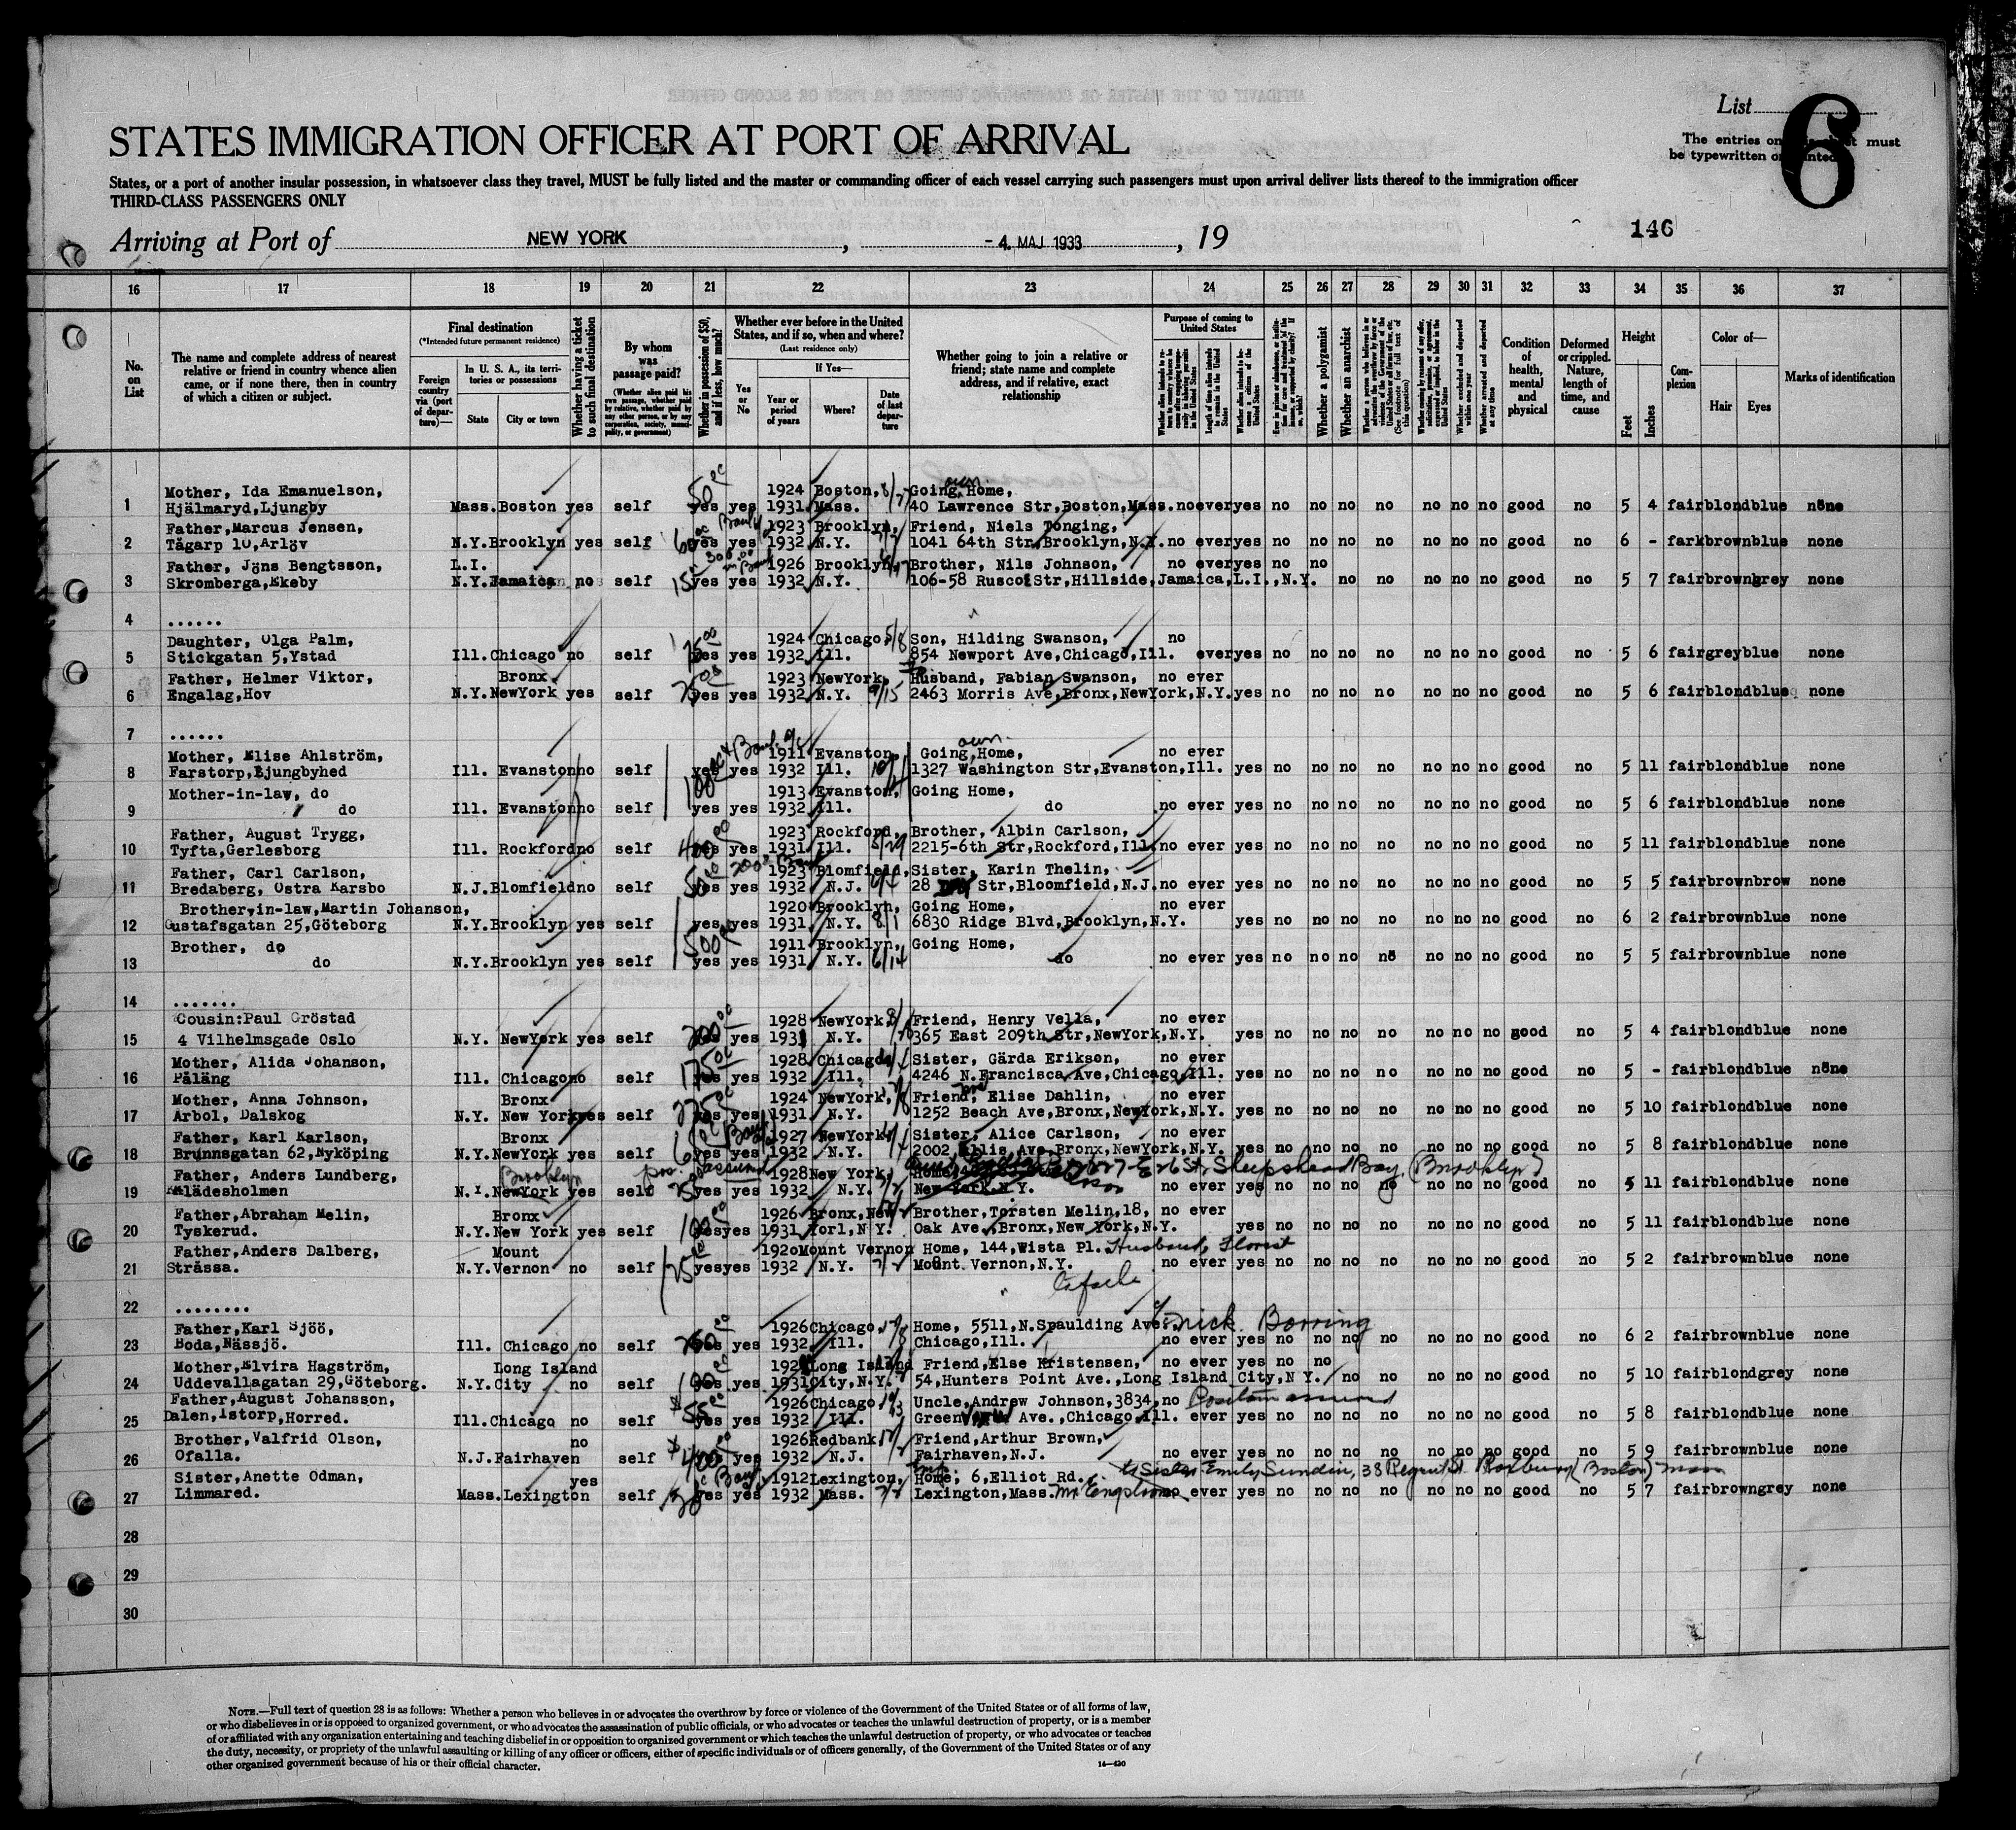 List 6
STATES IMMIGRATION OFFICER AT PORT OF ARRIVAL
The entries on must
be typewritten or
States, or a port of another insular possession, in whatsoever class they travel, MUST be fully listed and the master or commanding officer of each vessel carrying such passengers must upon arrival deliver lists thereof to the immigration officer
THIRD-CLASS PASSENGERS ONLY
146
Arriving at Port of NEW YORK, - 4. MAJ 1933, 19
16 17 18 19 20 21 22 23 24 25 26 27 28 29 30 31 32 33 34 35 36 37
No. on List
The name and complete address of nearest relative or friend in country whence alien came, or if none there, then in country of which a citizen or subject.
Final destination
(*Intended future permanent residence)
Foreign country via (port of departure)—
In U. S. A., its territories or possessions
State City or town
Whether having a ticket to such final destination
By whom was passage paid?
(Whether alien paid his own passage, whether paid by relative, whether paid by any other person, or by any corporation, society, municipality, or government)
Whether in possession of $50, and if less, how much?
Whether ever before in the United States, and if so, when and where?
(Last residence only)
Yes or No
If Yes—
Year or period of years
Where?
Date of last departure
Whether going to join a relative or friend; state name and complete address, and if relative, exact relationship
Purpose of coming to United States
Whether a polygamist
Whether an anarchist
Condition of health, mental and physical
Deformed or crippled. Nature, length of time, and cause
Height
Feet Inches
Complexion
Color of—
Hair Eyes
Marks of identification
Mother, Ida Emanuelson, 1924 Boston, Going own Home,
1 Hjälmaryd,Ljungby Mass. Boston yes self yes yes 1931 Mass. 40 Lawrence Str,Boston,Mass. no ever yes no no no no no no no good no 5 4 fair blond blue none
Father,Marcus Jensen, 1923 Brooklyn, Friend, Niels Tonging,
2 Tågarp 10,Arlöv N.Y. Brooklyn yes self yes yes 1932 N.Y. 1041 64th Str,Brooklyn,N.Y. no ever yes no no no no no no no good no 6 - fark brown blue none
Father, Jöns Bengtsson, L.I. 1926 Brooklyn, Brother, Nils Johnson, no ever yes no no
3 Skromberga,Ekeby N.Y. Jamaica no self 15 yes yes 1932 N.Y. 106-58 Ruscoe Str,Hillside,Jamaica,L.I.,N.Y. no no no no no good no 5 7 fair brown grey none
4 ......
Daughter, Olga Palm, 1924 Chicago, 5/8 Son, Hilding Swanson, no
5 Stickgatan 5,Ystad Ill. Chicago no self yes yes 1932 Ill. 854 Newport Ave,Chicago,Ill. ever yes no no no no no no no good no 5 6 fair grey blue none
Father, Helmer Viktor, Bronx. 1923 NewYork, Husband, Fabian Swanson, no ever
6 Engalag,Hov N.Y. NewYork yes self yes yes 1932 N.Y. 9/15 2463 Morris Ave,Bronx,NewYork,N.Y. yes no no no no no no no good no 5 6 fair blond blue none
7 ......
Mother, Elise Ahlström, 1911 Evanston, Going own Home, no ever
8 Farstorp,Ljungbyhed Ill. Evanston no self yes yes 1932 Ill. 1327 Washington Str,Evanston,Ill. yes no no no no no no no good no 5 11 fair blond blue none
Mother-in-law, do 1913 Evanston, Going Home,
9 do Ill. Evanston no self yes yes 1932 Ill. do no ever yes no no no no no no no good no 5 6 fair blond blue none
Father, August Trygg, 1923 Rockford, Brother, Albin Carlson,
10 Tyfta,Gerlesborg Ill. Rockford no self 400 yes yes 1931 Ill. 5/29 2215-6th Str,Rockford,Ill. no ever yes no no no no no no no good no 5 11 fair blond blue none
Father, Carl Carlson, 1923 Blomfield, Sister, Karin Thelin,
11 Bredaberg, Ostra Karsbo N.J. Blomfield no self yes yes 1932 N.J. 28 Str,Bloomfield,N.J. no ever yes no no no no no no no good no 5 5 fair brown brow none
Brother,in-law,Martin Johanson, 1920 Brooklyn, Going Home, no ever
12 Gustafsgatan 25,Göteborg N.Y. Brooklyn yes self yes yes 1931 N.Y. 8/1 6830 Ridge Blvd,Brooklyn,N.Y. yes no no no no no no no good no 6 2 fair brown blue none
Brother, do 1911 Brooklyn, Going Home,
13 do N.Y. Brooklyn yes self 500 yes yes 1931 N.Y. 6/14 do no ever yes no no no no no no no good no 5 5 fair brown blue none
14 .......
Cousin:Paul Gröstad 1928 NewYork, Friend, Henry Vella, no ever
15 4 Vilhelmsgade Oslo N.Y. NewYork yes self 200 yes yes 1931 N.Y. 365 East 209th Str,NewYork,N.Y. yes no no no no no no no good no 5 4 fair blond blue none
Mother, Alida Johanson, 1928 Chicago, Sister, Gärda Erikson, no ever
16 Päläng Ill. Chicago no self 175 yes yes 1932 Ill. 4246 N.Francisca Ave,Chicago,Ill. yes no no no no no no no good no 5 - fair blond blue none
Mother, Anna Johnson, Bronx 1924 NewYork, Friend, Elise Dahlin, no ever
17 Arbol, Dalskog N.Y. New York yes self yes yes 1931 N.Y. 1252 Beach Ave,Bronx,NewYork,N.Y. yes no no no no no no no good no 5 10 fair blond blue none
Father, Karl Karlson, Bronx 1927 NewYork, Sister, Alice Carlson, no ever
18 Brunnsgatan 62,Nyköping N.Y. NewYork yes self yes yes 1932 N.Y. 2002 Ellis Ave,Bronx,NewYork,N.Y. yes no no no no no no no good no 5 8 fair blond blue none
Father, Anders Lundberg, Brooklyn pos. assured 1928 New York, Sheepshead Bay, (Brooklyn)
19 Klädesholmen N.Y. NewYork yes self 25 yes yes 1932 N.Y. New York N.Y. no ever yes no no no no no no no good no 5 11 fair blond blue none
Father,Abraham Melin, Bronx 1926 Bronx,New Brother,Torsten Melin,18, no ever
20 Tyskerud. N.Y. New York yes self 100 yes yes 1931 Yorl,N.Y. Oak Ave.,Bronx,New York,N.Y. yes no no no no no no no good no 5 11 fair blond blue none
Father,Anders Dalberg, Mount 1920 Mount Vernon Home, 144,Wista Pl. Husband,
21 Stråssa. N.Y. Vernon no self 25 yes yes 1932 N.Y. Mount Vernon,N.Y. no ever yes no no no no no no no good no 5 2 fair brown blue none
22 ........
Father,Karl Sjöö, 1926 Chicago, Home, 5511,N.Spaulding Ave. Nick Borring
23 Boda,Nässjö. Ill. Chicago no self yes yes 1932 Ill. Chicago,Ill. no ever yes no no no no no no no good no 6 2 fair brown blue none
Mother,Elvira Hagström, Long Island Long Island Friend,Else Kristensen, no ever yes no no
24 Uddevallagatan 29,Göteborg. N.Y. City no self 100 yes yes 1931 City,N.Y. 54,Hunters Point Ave.,Long Island City,N.Y. no no no no no good no 5 10 fair blond grey none
Father,August Johansson, 1926 Chicago, Uncle,Andrew Johnson,3834, no Position assured
25 Dalen,Istorp,Horred. Ill. Chicago no self $55 yes yes 1932 Ill. Green Ave.,Chicago,Ill. ever yes no no no no no no no good no 5 8 fair blond blue none
Brother,Valfrid Olson, no 1926 Redbank, Friend,Arthur Brown,
26 Ofalla. N.J. Fairhaven self $400 yes yes 1932 N.J. Fairhaven,N.J. no ever yes no no no no no no no good no 5 9 fair brown blue none
Sister,Anette Odman, yes 1912 Lexington, Home; 6,Elliot Rd. to Sister Emily Sundin, 38 Regent St Roxbury (Boston) Mass
27 Limmared. Mass. Lexington self yes yes 1932 Mass. Lexington,Mass. Mr Engstrom no ever yes no no no no no no no good no 5 7 fair brown grey none
28
29
30
NOTE.—Full text of question 28 is as follows: Whether a person who believes in or advocates the overthrow by force or violence of the Government of the United States or of all forms of law,
or who disbelieves in or is opposed to organized government, or who advocates the assassination of public officials, or who advocates or teaches the unlawful destruction of property, or is a member
of or affiliated with any organization entertaining and teaching disbelief in or opposition to organized government or which teaches the unlawful destruction of property, or who advocates or teaches
the duty, necessity, or propriety of the unlawful assaulting or killing of any officer or officers, either of specific individuals or of officers generally, of the Government of the United States or of any
other organized government because of his or their official character.
14—430